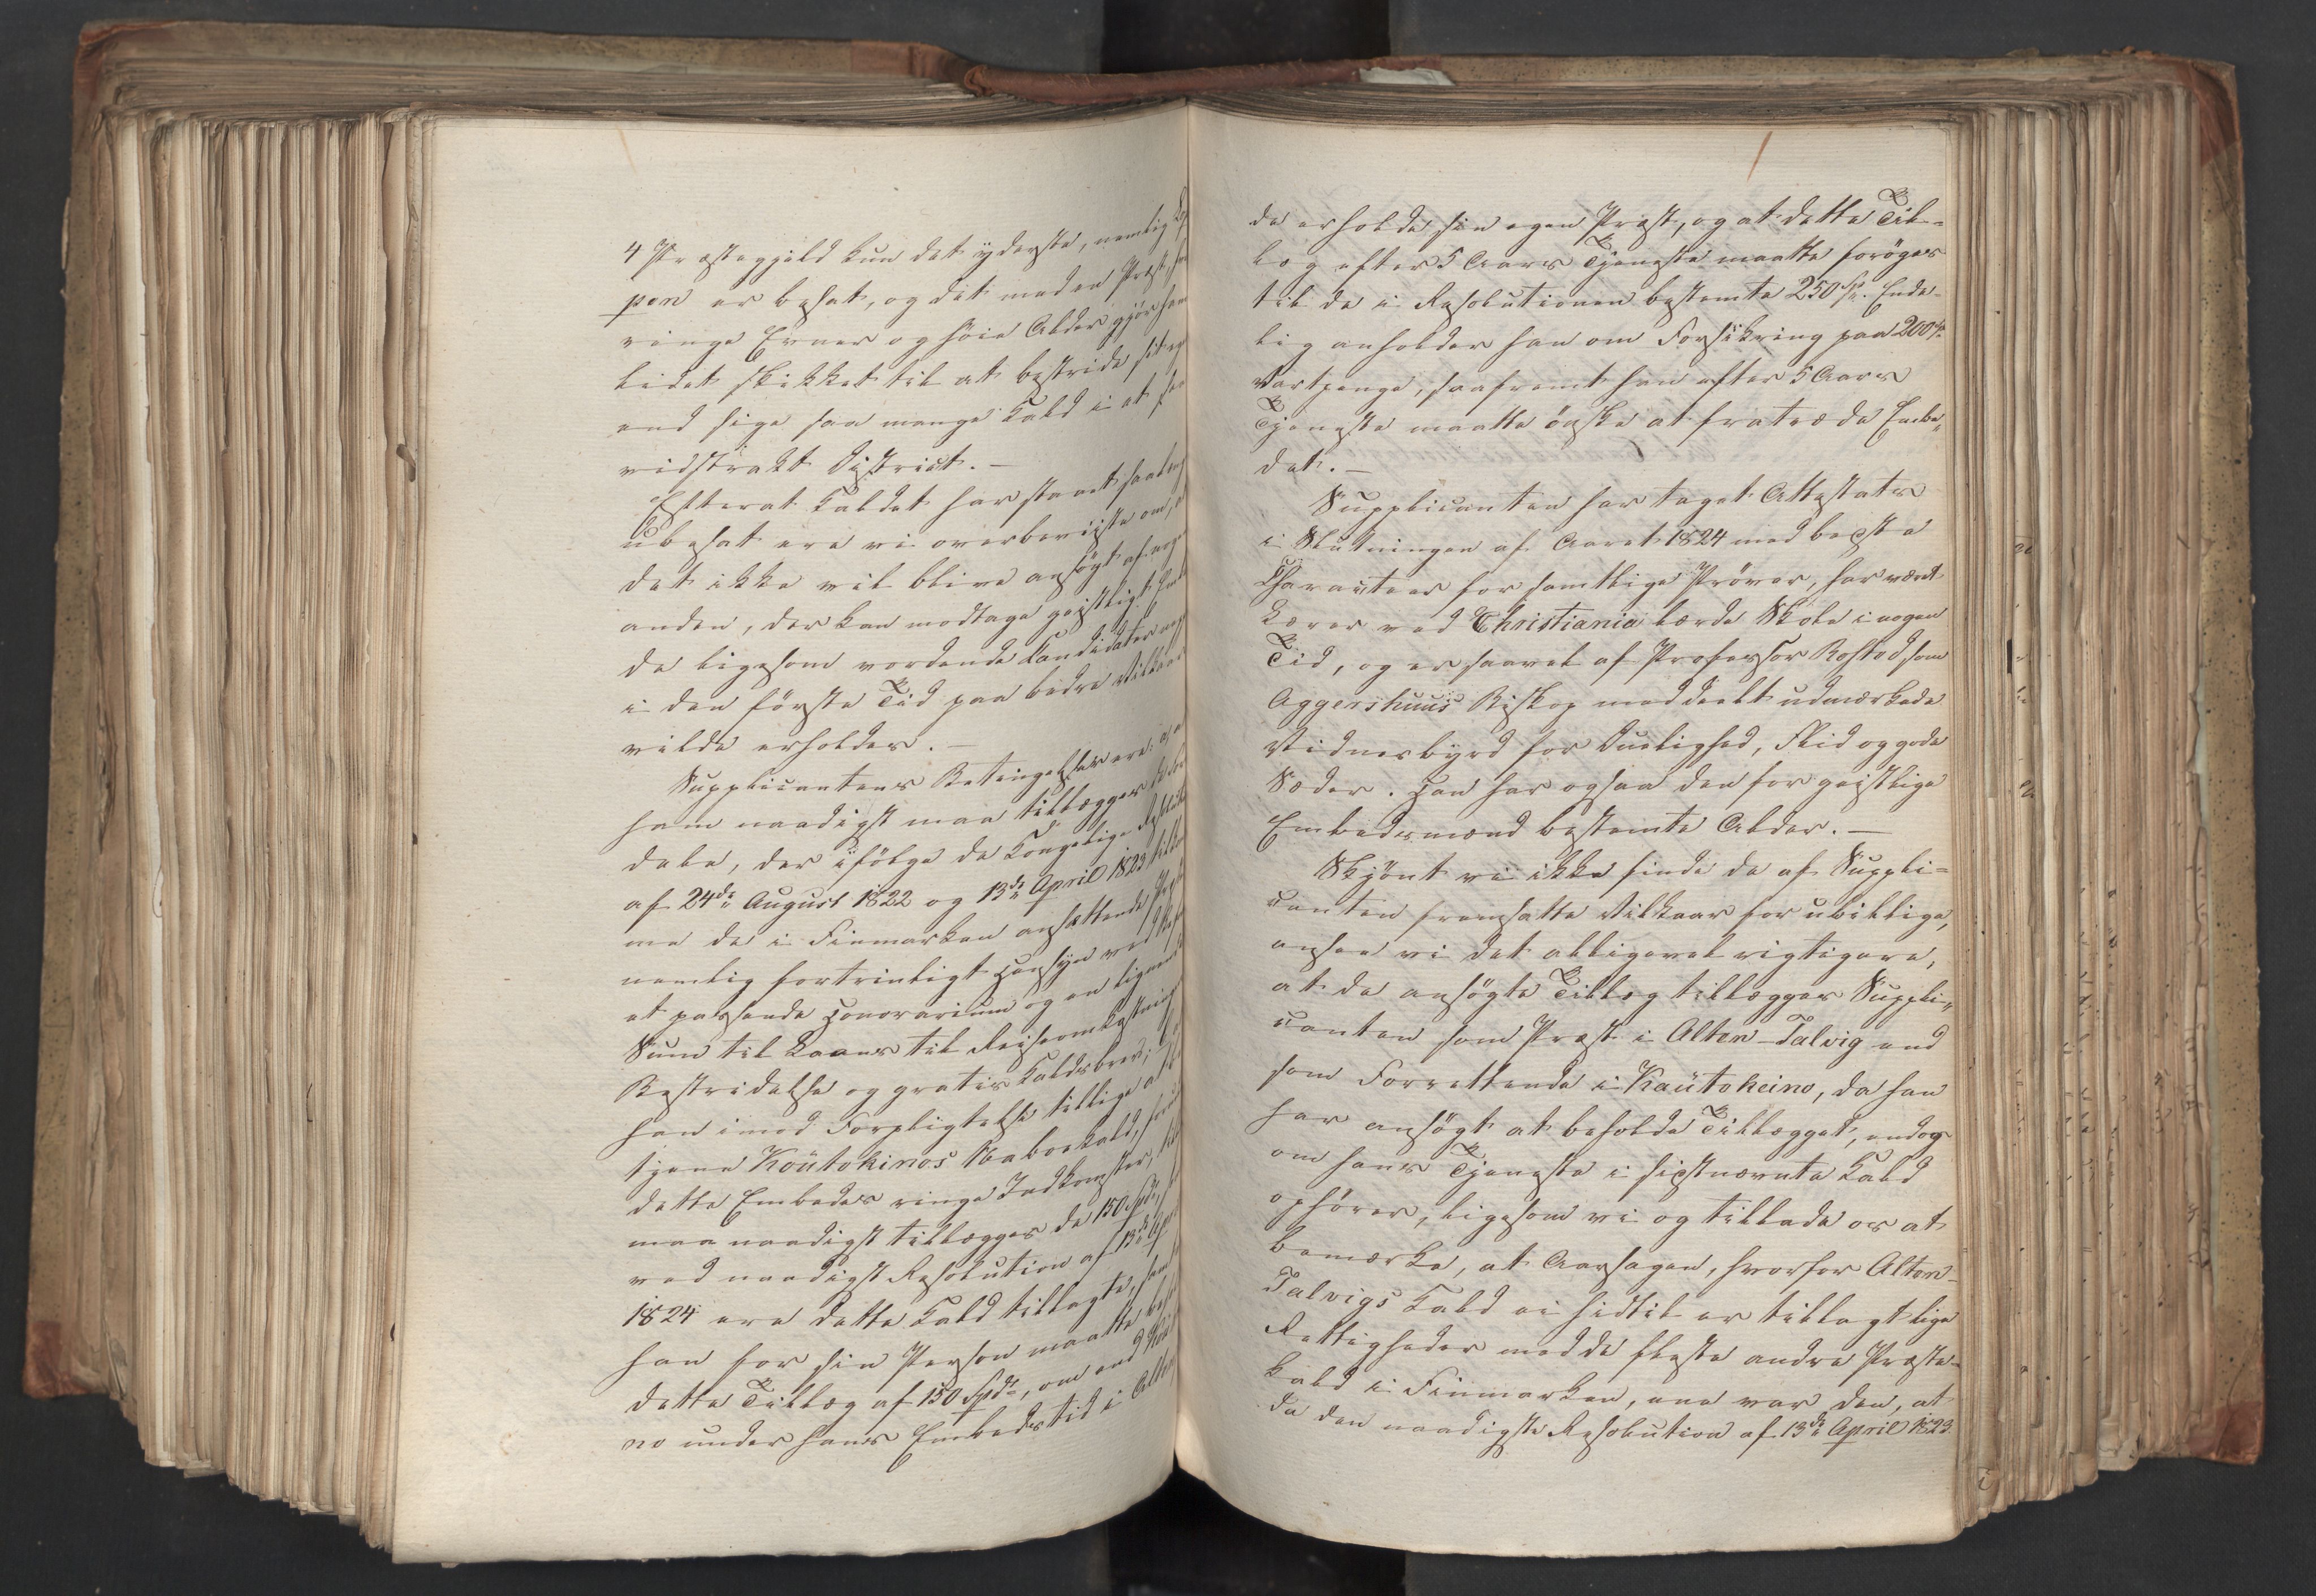 4 Præstegjeld kun det yderste, nemlig
pen er besat, og det med en Præst,
ringe Evner og høie Alder gjør ham
lidet skikket til at bestride sit eget
end sige saa mange Kald i et saa
vidstrakt District. —
Efterat Kaldet har staaet saalænge
ubesat ere vi overbeviiste om, at
det ikke vil blive ansøgt af nogen
anden, der kan modtage geistligt Embe-
de ligesom vordende Candidater
i den første Tid paa bedre Vilkaar
vilde erholdes. —
Supplicantens Betingelser ere: at
ham naadigst maa tillægges de For-
dele, der ifølge de Kongelige Resoluti
af 24de August 1822 og 13de April 1823 tilkom-
me de i Finmarken ansættende Præster
nemlig fortrinligt Hensyn ved
et passende Honorarium og en lignende
Sum til Laans til Reiseomkostningers
Bestridelse og gratis Kaldsbrev; at
han imod Forpligtelse tillige at be-
tjene Koutokinos Naboekald, for
dette Embedes ringe Indkomster,
maa naadigst tillægges de 150 Spd,
ved naadigst Resolution af 13de April
1824 ere dette Kald tillagte, samt
han for sin Person maatte beholde
dette Tillæg af 150 Spd, om end Kautokei-
no under hans Embedstid i Alten
de erholde sin egen Præst, og at dette Til-
læg efter 5 Aars Tjeneste maatte forøges
til de i Resolutionen bestemte 250 Sp. Ende-
lig anholder han om Forsikring paa 200 Sp
Vartpenge, saafremt han efter 5 Aars
Tjeneste maatte ønske at fratræde Embe-
det. —
Supplicanten har taget Attestats
i Slutningen af Aaret 1824 med bedste
Charakteer for samtlige Prøver, har været
Lærer ved Christiania lærde Skole i nogen
Tid, og er saavel af Professor Rosted som
Aggershuus Biskop meddeelt udmærkede
Vidnesbyrd for Duelighed, Flid og gode
Sæder. Han har ogsaa den for geistlige
Embedsmænd bestemte Alder. —
Skjønt vi ikke finde de af Suppli-
canten fremsatte Vilkaar for ubillige,
ansee vi det alligevel rigtigere,
at de ansøgte Tillæg tillægges Suppli-
canten som Præst i Alten-Talvig end
som Forrettende i Kautokeino, da han
har ansøgt at beholde Tillægget, endog
om hans Tjeneste i sidstnævnte Kald
ophører, ligesom vi og tillade os at
bemærke, at Aarsagen, hvorfor Alten-
Talvigs Kald ei hidtil er tillagt lige
Rettigheder med de fleste andre Præste-
kald i Finmarken, ene var den, at
da den naadigste Resolution af 13de April 1823